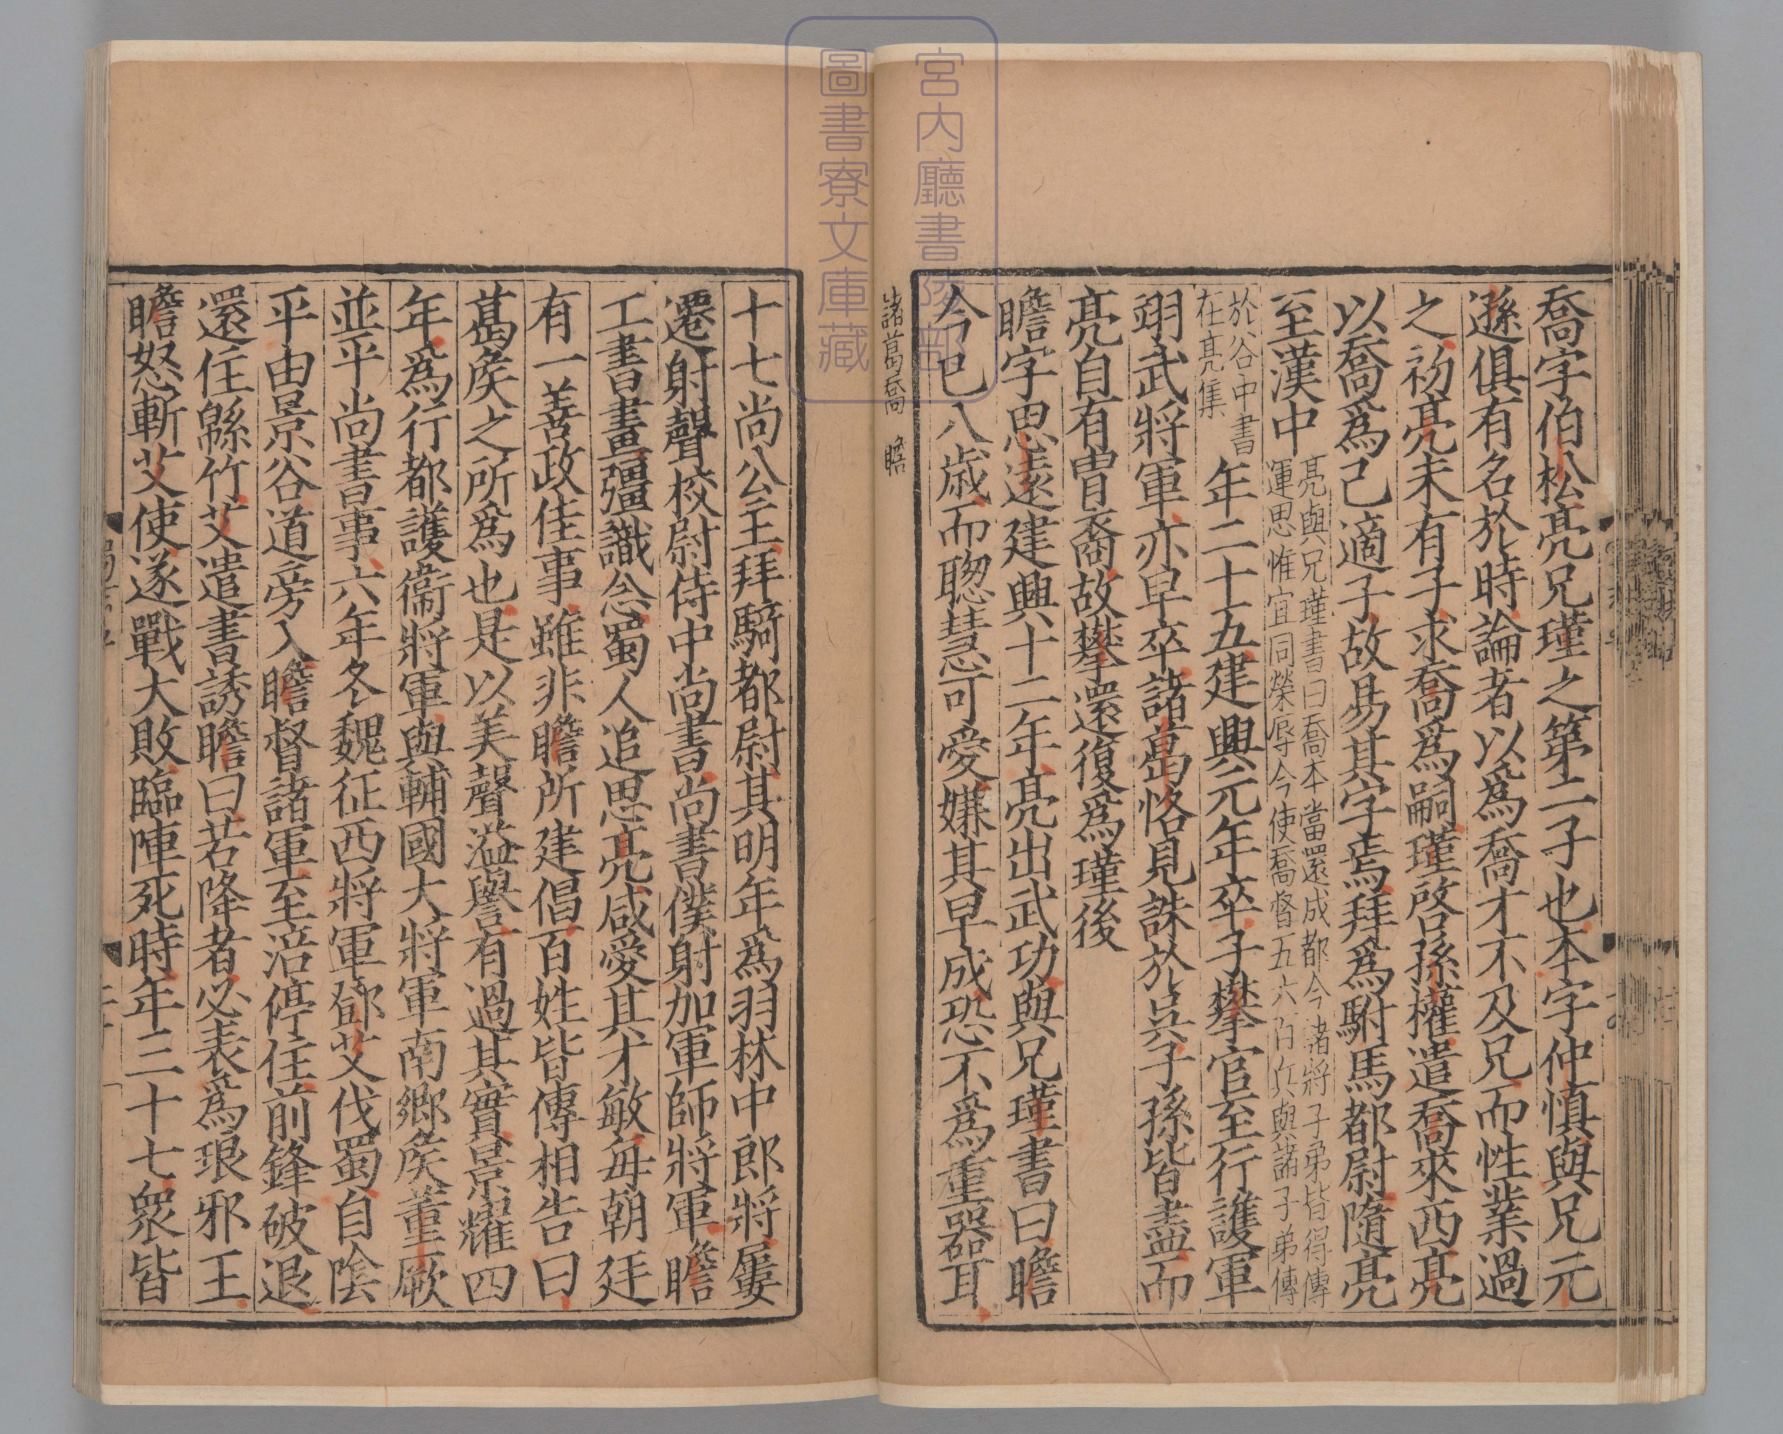 喬字伯松亮兄瑾之第二子也本字仲慎與兄元
遜俱有名於時論者以為喬才不及兄而性業過
之初亮未有子求喬為嗣瑾啓孫權遣喬來西亮
以喬為己適子故易其字焉拜為駙馬都尉隨亮
至漢中
亮與兄瑾書曰喬本當還成都今諸將子弟皆得傳
運思惟宜同榮辱今使喬督五六百兵與諸子弟傳
於谷中書
在亮集
年二十五建興元年卒子攀官至行護軍
翊武將軍亦早卒諸葛恪見誅於吳子孫皆盡而
亮自有冑裔故攀還復為瑾後
瞻字思遠建興十二年亮出武功與兄瑾書曰瞻
今已八歲而聦慧可愛嫌其早成恐不為重器耳
諸葛喬 瞻
十七尚公主拜騎都尉其明年為羽林中郎將屢
遷射聲校尉侍中尚書尚書僕射加軍師將軍瞻
工書畫彊識念蜀人追思亮咸愛其才敏每朝廷
有一善政佳事雖非瞻所建倡百姓皆傳相告曰
葛侯之所為也是以美聲溢譽有過其實景耀四
年為行都護衞將軍與輔國大將軍南鄉侯董厥
並平尚書事六年冬魏征西將軍鄧艾伐蜀自陰
平由景谷道旁入瞻督諸軍至涪停住前鋒破退
還住緜竹艾遣書誘瞻曰若降者必表為琅邪王
瞻怒斬艾使遂戰大敗臨陣死時年三十七衆皆
宮內廳書陵部
圖書寮文庫藏